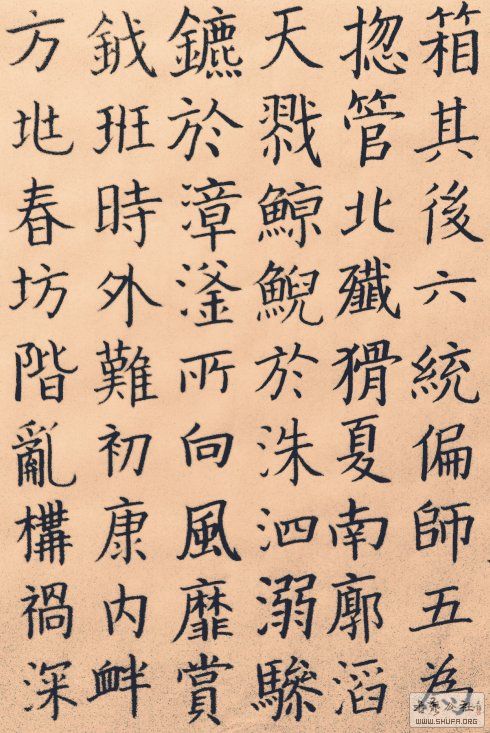 箱其後六統偏師五為
揔管北殲猾夏南廓滔
天戮鯨鯢於洙泗溺驂
鑣於漳滏所向風靡賞
鉞班時外難初康内衅
方兆春坊階亂構禍深
WWW.SHUFA.ORG